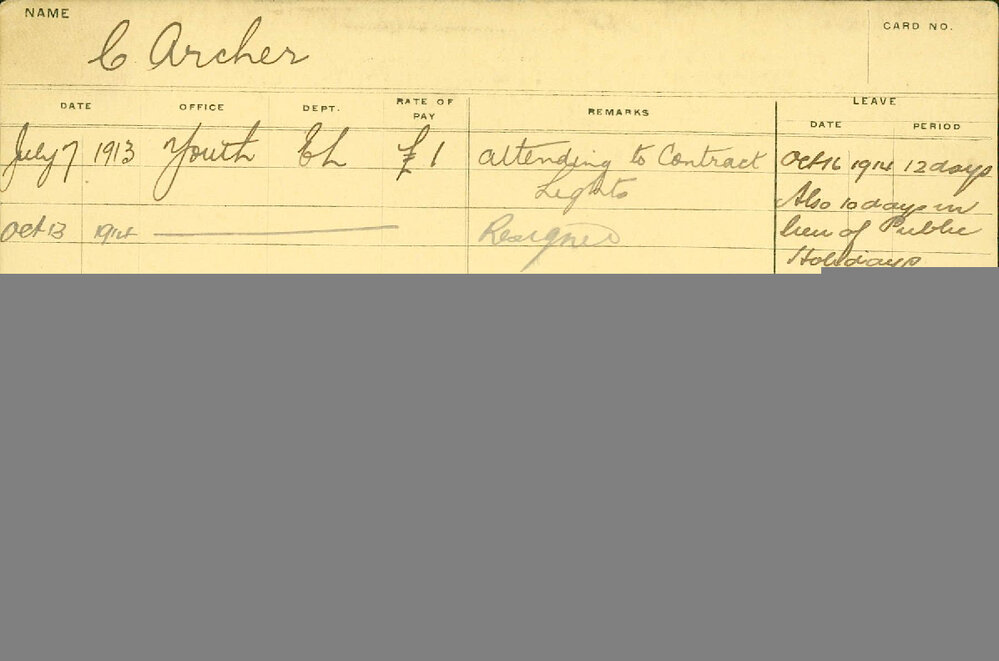 NAME
C Archer
CARD NO.
DATE OFFICE DEPT. RATE OF PAY REMARKS LEAVE
DATE PERIOD
July 7 1913 Youth EL £1 attending to Contract Oct 16 1914 12 days
Lights Also 10 days in
Oct 13 1914 Resigned lieu of Public
Holidays